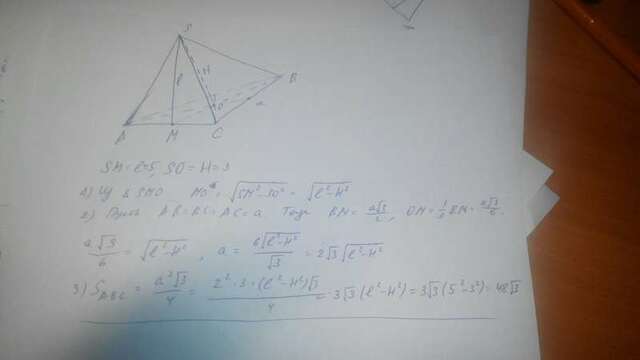 S
l
H
O
B
a
A M C
SM = l = 5, SO = H = 3
1) Из Δ SMO MO = √(SM² - SO²) = √(l² - H²)
2) Пусть AB = BC = AC = a. Тогда BM = a√3/2, OM = 1/3 BM = a√3/6.
a√3/6 = √(l² - H²), a = 6√(l² - H²)/√3 = 2√3 √(l² - H²)
3) S_ABC = a²√3/4 = 2²·3·(l² - H²)√3/4 = 3√3 (l² - H²) = 3√3 (5² - 3²) = 48√3